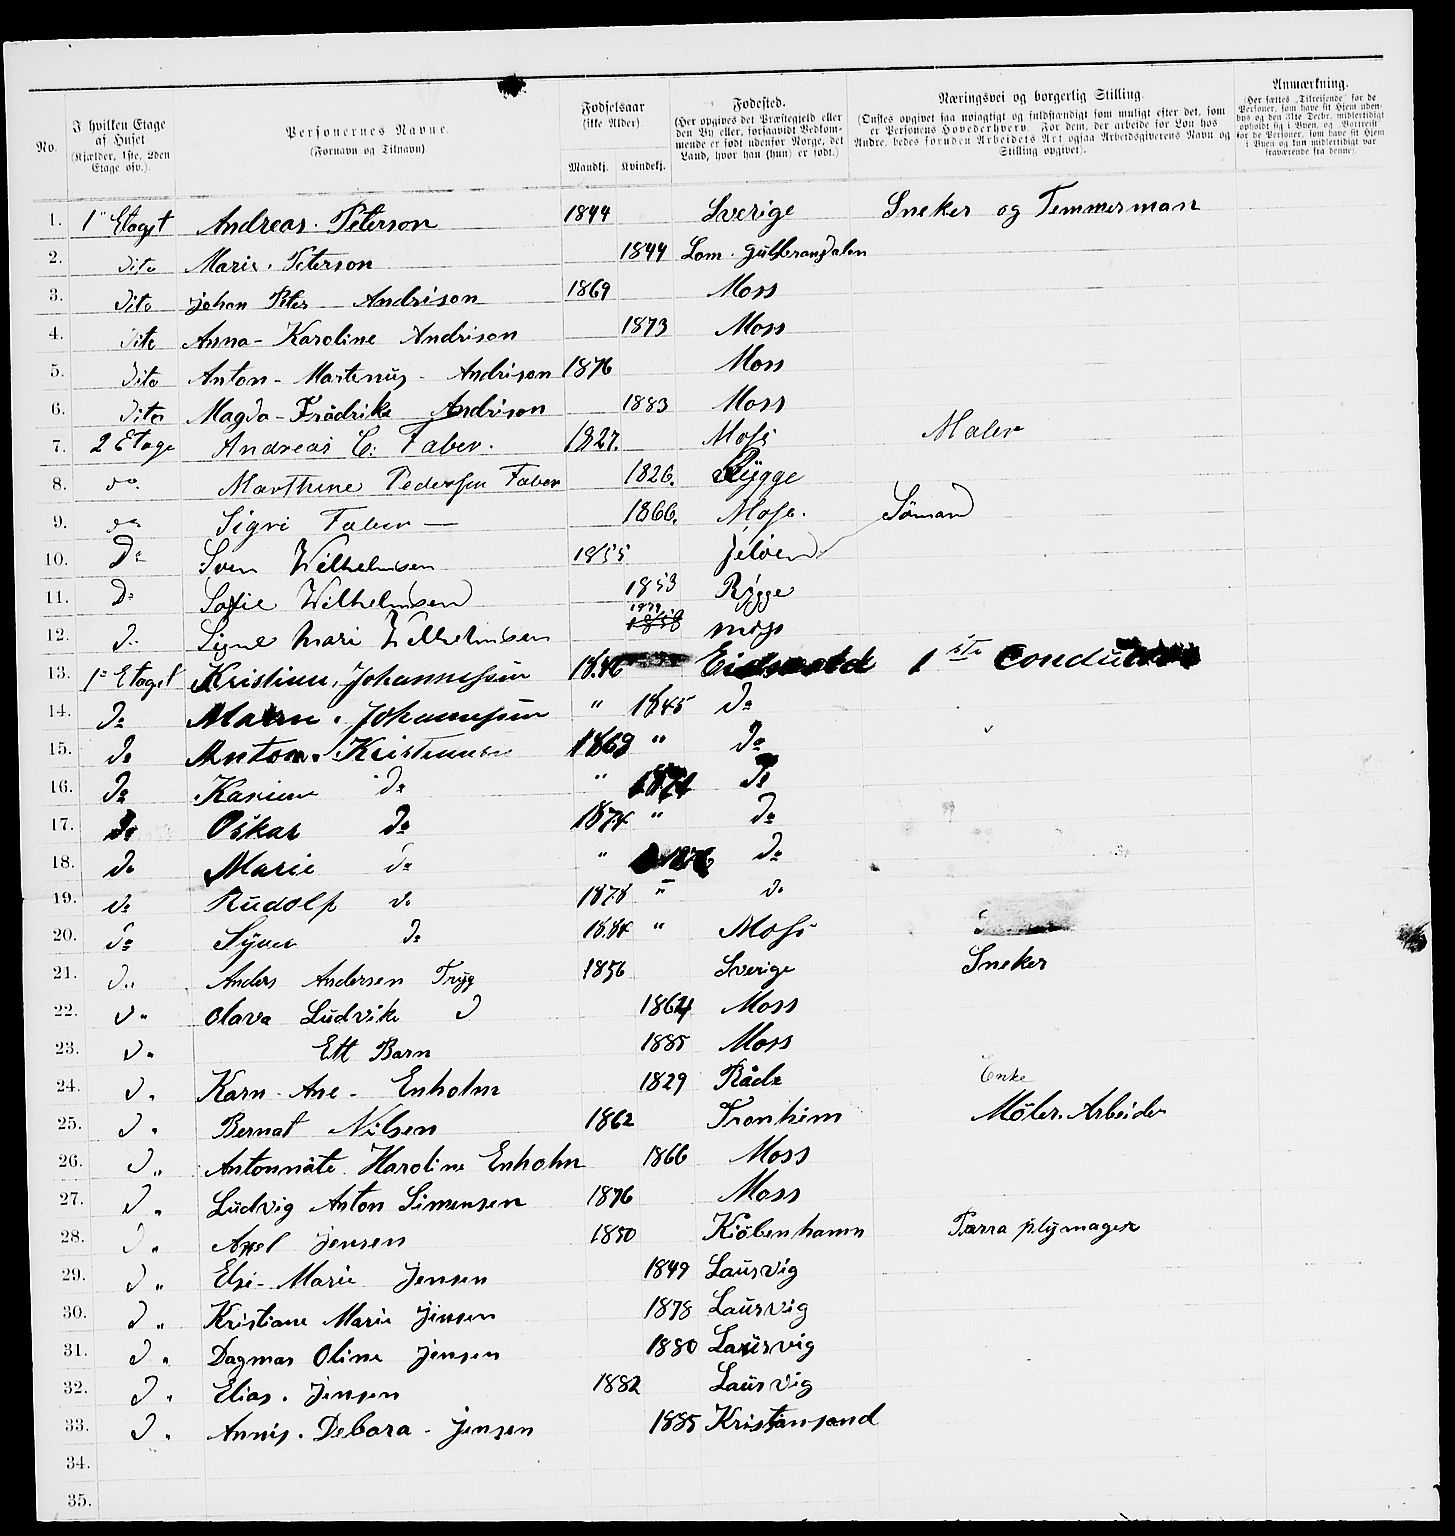 No. | I hvilken Etage af Huset (Kjælder, 1ste, 2den Etage osv.). | Personernes Navne. (Fornavn og Tilnavn) | Fødselsaar (ikke Alder). Mandkj. | Kvindekj. | Fødested. (Her opgives det Præstegjeld eller den By eller, forsaavidt Vedkommende er født udenfor Norge, det Land, hvor han (hun) er født.) | Næringsvei og borgerlig Stilling. (Ønskes opgivet saa nøiagtigt og fuldstændigt som muligt efter det, som er Personens Hovederhverv. For dem, der arbeide for Løn hos Andre, bedes foruden Arbeidets Art ogsaa Arbeidsgiverens Navn og Stilling opgivet). | Anmærkning. (Her sættes „Tilreisende" for de Personer, som have sit Hjem udenbys og den 31te Decbr. midlertidigt opholdt sig i Byen, og „Bortreist" for de Personer, som have sit Hjem i Byen og kun midlertidigt var fraværende fra denne).
1. 1" Etaget Andreas Peterson 1844 Sverige Sneker og Temmerman
2. Dito Marie Peterson 1844 Lom Gulbrandalen
3. Dito Johan Peter Andrison 1869 Moss
4. Dito Anna - Karoline Andrison 1873 Moss
5. Dito Anton - Martenus - Andrison 1876 Moss
6. Dito Magda - Frådrike Andrison 1883 Moss
7. 2 Etage Andreas C. Faber. 1827. Moss Maler
8. do. Marthine Pedersen Faber 1826. Rygge
9. do Sigri Faber — 1866. Moss.
10. Do Sven Wilhelmsen 1855 Jeløen Sömand
11. Do Sofie Wilhelmsen 1853 Rygge
12. D. Signe Mari Wilhelmsen 1879 Moss
13. 1e Etaget Kristian Johannessen 1846 Eidsvold 1ste Conduktør
14. Do Maren Johannessen " 1845 Do
15. Do Anton Kristiansen 1869 " Do
16. Do Karine Do " 1871 Do
17. Do Oskar Do 1874 " Do
18. Do Marie Do " 1876 Do
19. Do Rudolf Do 1878 " Do
20. Do Syver Do 1884 " Moss
21. D " Anders Andersen Tryg 1856 Sverige Sneker
22. D " Olava Ludvike D 1864 Moss
23. D " Ett Barn 1885 Moss
24. D " Karn - Ane - Enholm 1829 Råde Enke
25. D " Bernat Nilsen 1862 Tronhim Möler. Arbeider
26. D " Antonnäte Haroline Enholm 1866 Moss
27. D " Ludvig Anton Simensen 1876 Moss
28. D " Axel Jensen 1850 Kiöbenhamn Parra plymager
29. D " Elsi - Marie Jensen 1849 Laurvig
30. D " Kristiane Marie Jensen 1878 Laurvig
31. D " Dagmar Oline Jensen 1880 Laurvig
32. D " Elias. Jensen 1882 Laurvig
33. D " Annis. Debora - Jensen 1885 Kristansand
34.
35.